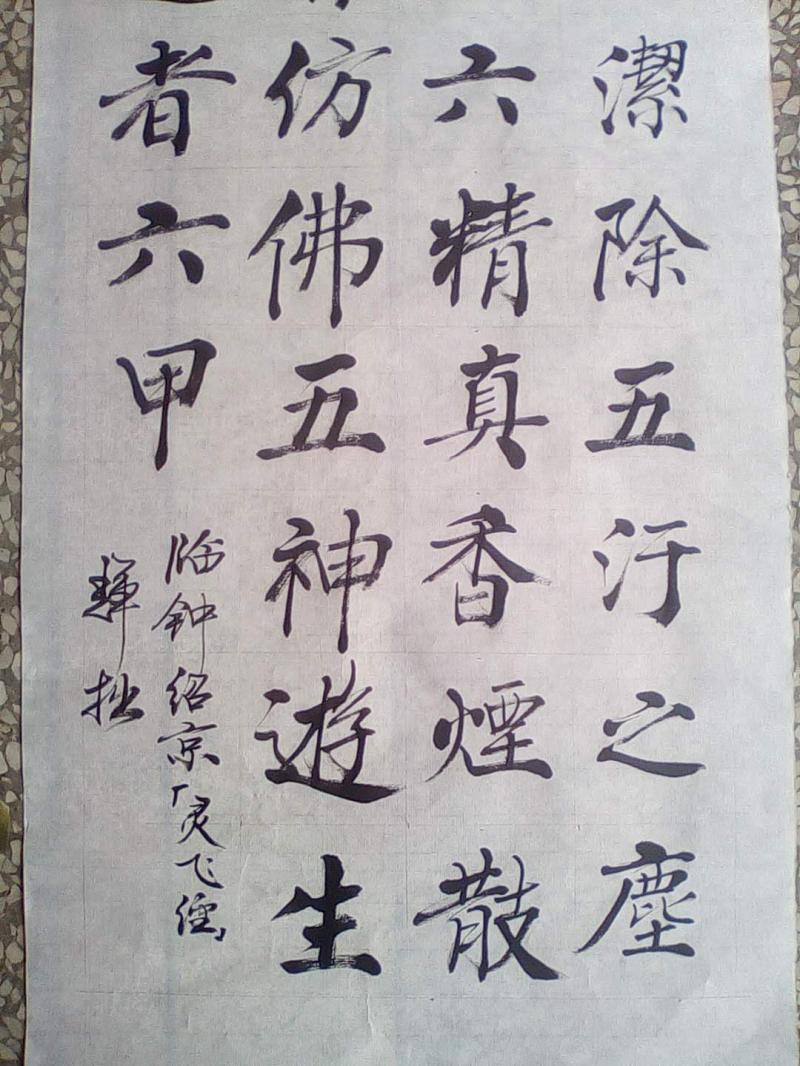 潔除五汙之塵
六精真香煙散
仿佛五神遊生
者六甲
临钟绍京「灵飞经」
輝拙